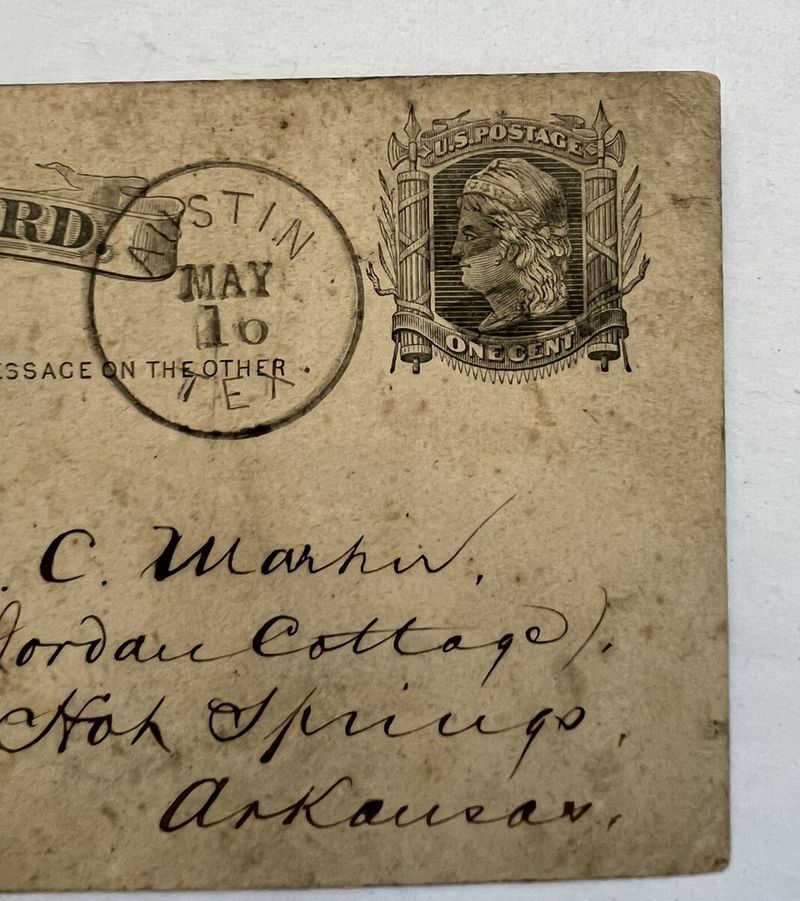 U.S. POSTAGE
RD.
AUSTIN
MAY
10
TEX
ONE CENT
ESSAGE ON THE OTHER.
. C. Martin.
Jordan Cottage).
Hot Springs,
Arkansas.